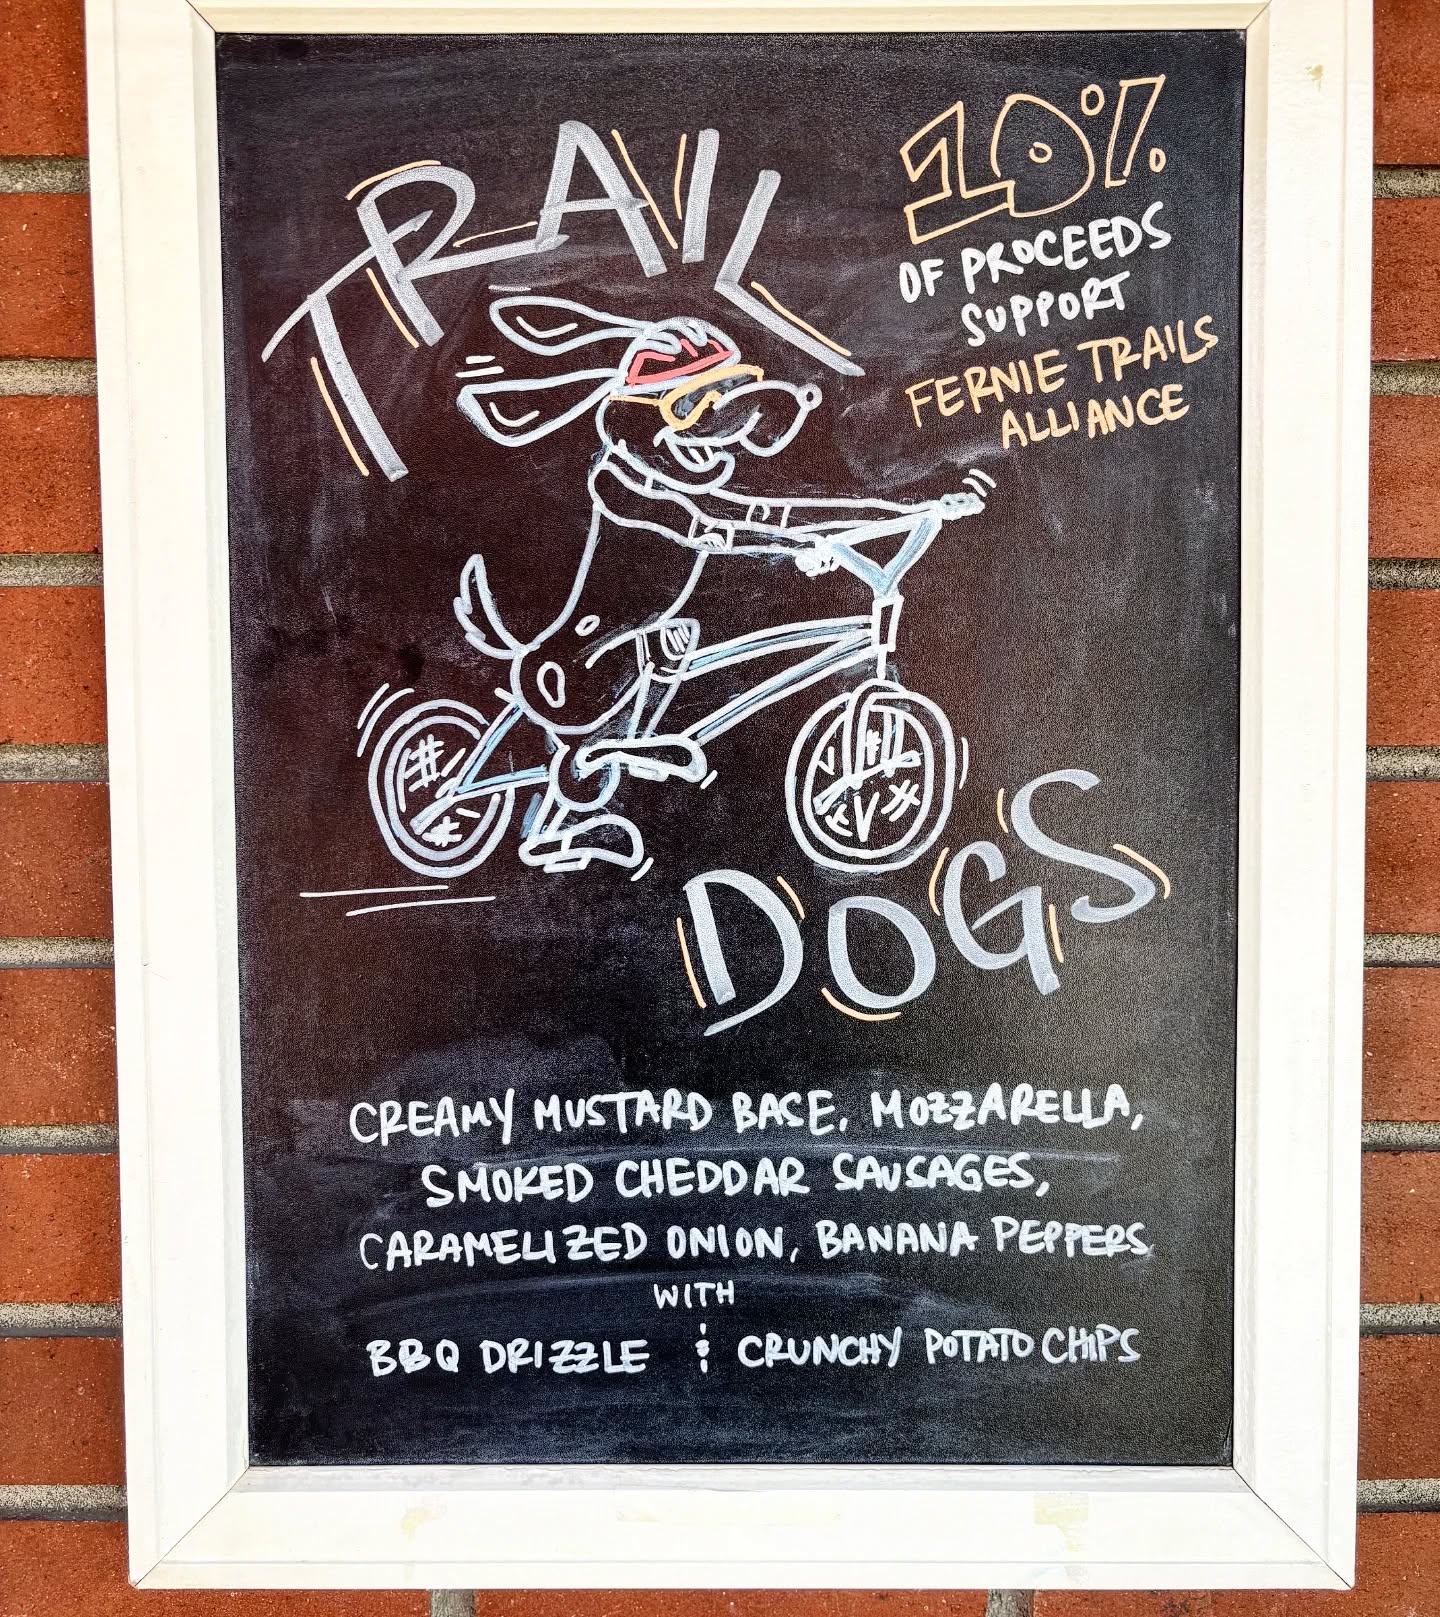 TRAIL
10%
OF PROCEEDS
SUPPORT
FERNIE TRAILS
ALLIANCE
DOGS
CREAMY MUSTARD BASE, MOZZARELLA,
SMOKED CHEDDAR SAUSAGES,
CARAMELIZED ONION, BANANA PEPPERS
WITH
BBQ DRIZZLE & CRUNCHY POTATO CHIPS